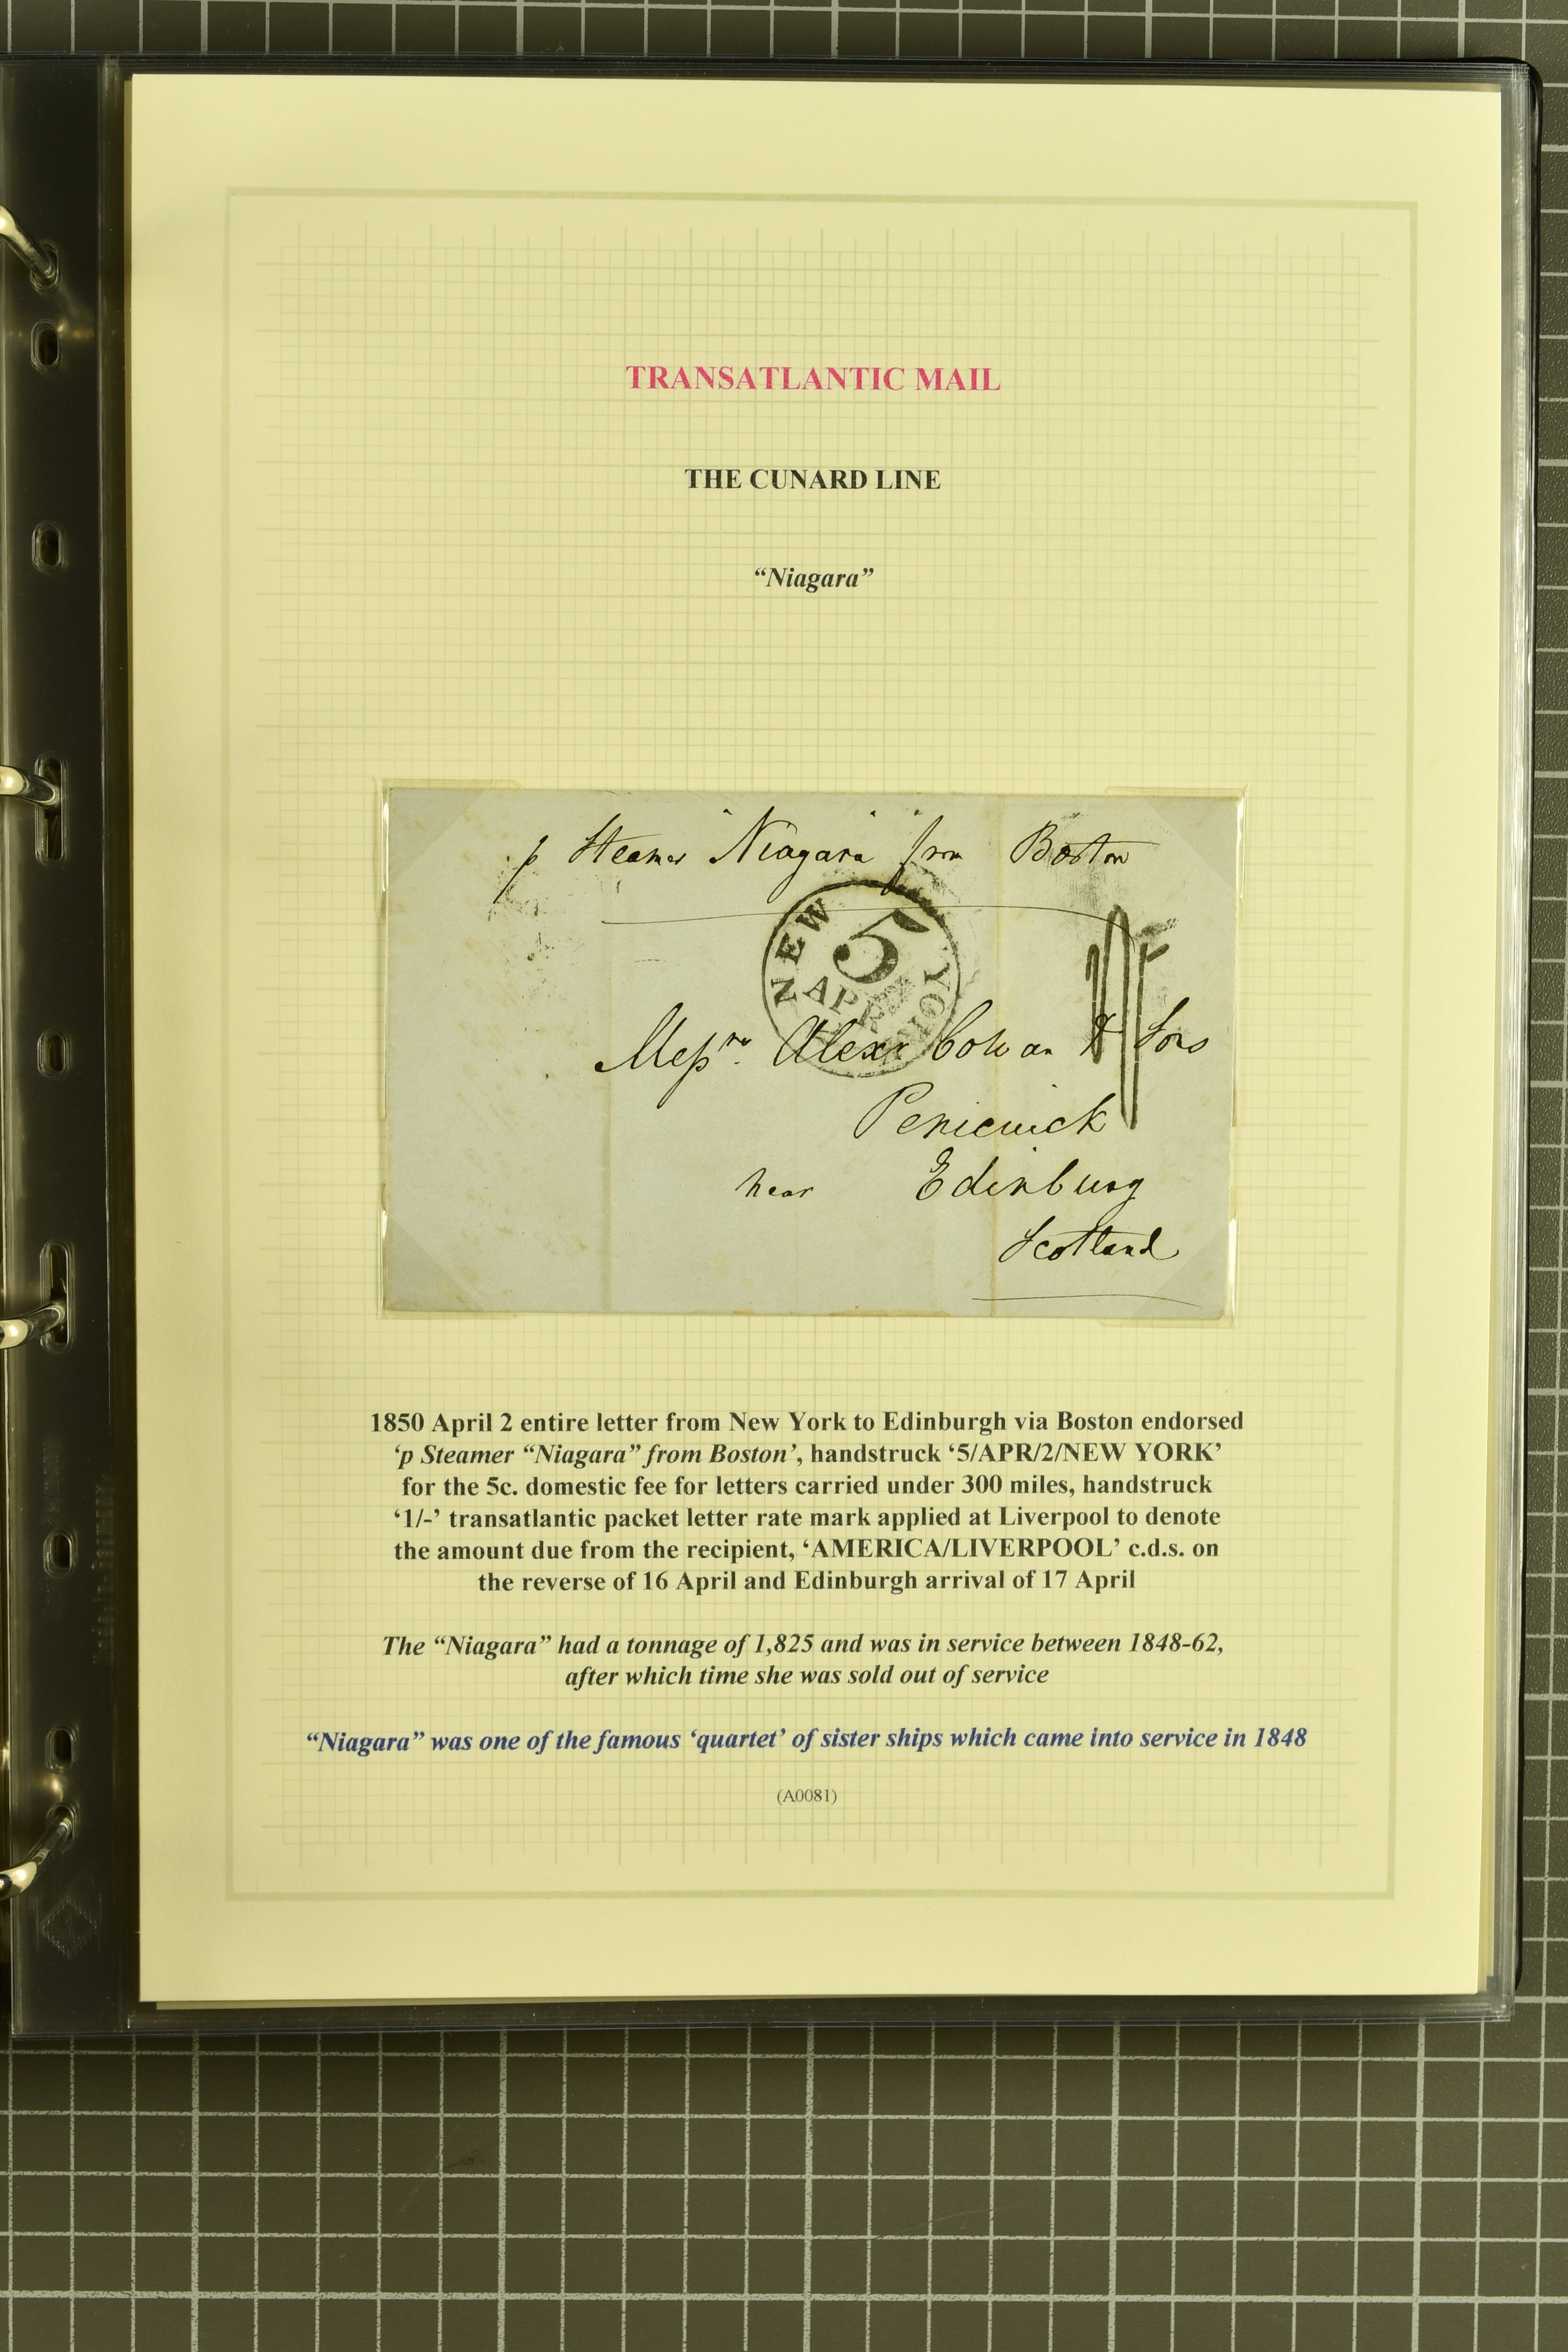 TRANSATLANTIC MAIL
THE CUNARD LINE
“Niagara”
p Steamer "Niagara" from Boston
NEW YORK
5
APR
Messrs. Alexr Cowan & Sons
Penicuick
near Edinburg
Scotland
1850 April 2 entire letter from New York to Edinburgh via Boston endorsed
‘p Steamer “Niagara” from Boston’, handstruck ‘5/APR/2/NEW YORK’
for the 5c. domestic fee for letters carried under 300 miles, handstruck
‘1/-’ transatlantic packet letter rate mark applied at Liverpool to denote
the amount due from the recipient, ‘AMERICA/LIVERPOOL’ c.d.s. on
the reverse of 16 April and Edinburgh arrival of 17 April
The “Niagara” had a tonnage of 1,825 and was in service between 1848-62,
after which time she was sold out of service
“Niagara” was one of the famous ‘quartet’ of sister ships which came into service in 1848
(A0081)